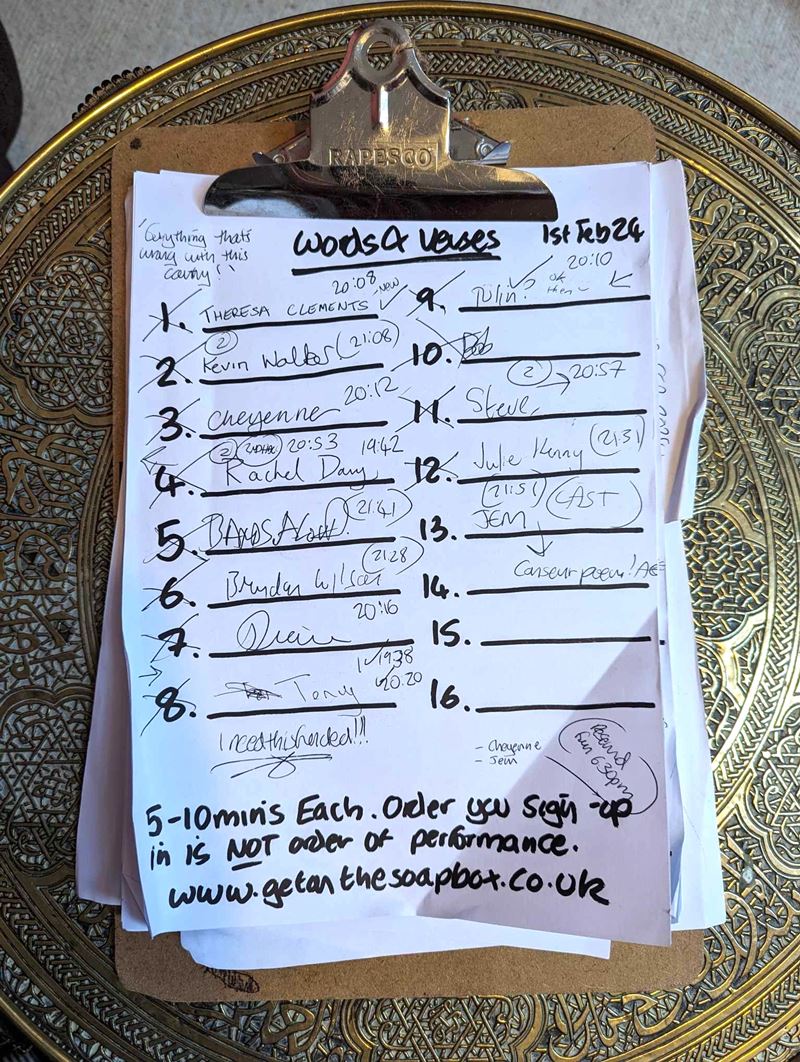 RAPESCO
Words & Verses
1st Feb 24
'Everything that's
wrong with this
country!'
20:08
1. THERESA CLEMENTS new
2
2. Kevin Walker (21:08)
20:12
3. Cheyenne
2 20:53 19:42
4. Rachel
21:41
5.
21:28
6. Brendan Wilson
20:16
7.
1 19:38
20:20
8. Tony
I need this funded!!!
20:10
9. Julin?
10. Bob
2 → 20:57
11. Steve
12. Julie Kenny (21:31)
(21:51) (LAST)
13. JEM
poem!
14.
15.
16.
- Cheyenne
- Jem
from 6:30pm
5-10mins Each. Order you sign-up
in is NOT order of performance.
www.getonthesoapbox.co.uk